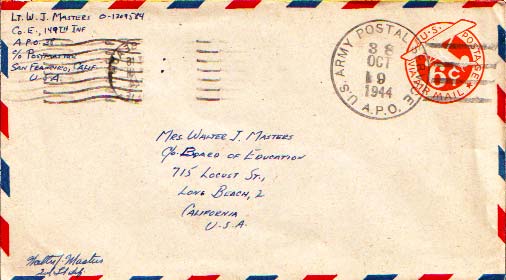 LT. W. J. MASTERS O-1309584
CO. E, 149TH INF
A.P.O. 38
C/O POSTMASTER
SAN FRANCISCO, CALIF.
U.S.A.
U.S. ARMY POSTAL
A.P.O.
38
OCT
9
1944
U.S. POSTAGE
6¢
VIA AIR MAIL
MRS. WALTER J. MASTERS
C/O BOARD OF EDUCATION
715 LOCUST ST.,
LONG BEACH, 2
CALIFORNIA
U.S.A.
Masters